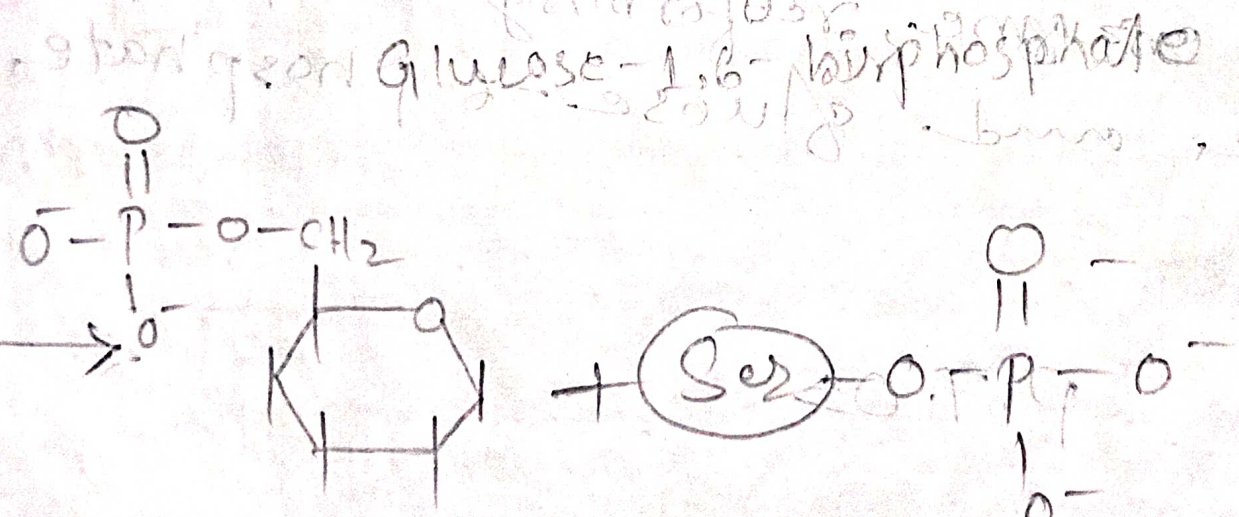 Glucose-1,6-bisphosphate
O
O⁻ - P - O - CH2
O⁻
O
O
+ Ser - O - P - O⁻
O⁻